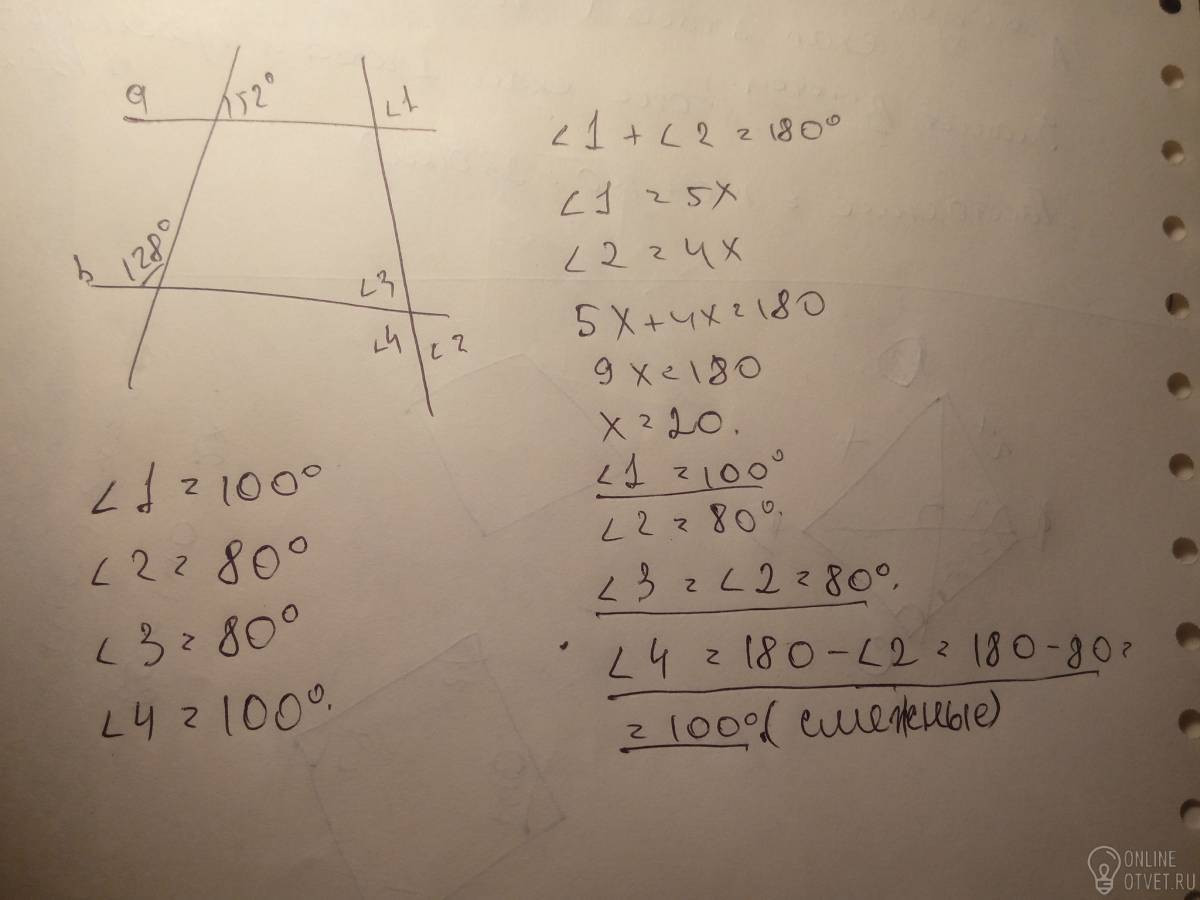 a
52°
∠1
b
128°
∠3
∠4 ∠2
∠1 = 100°
∠2 = 80°
∠3 = 80°
∠4 = 100°.
∠1 + ∠2 = 180°
∠1 = 5x
∠2 = 4x
5x+4x=180
9x=180
x=20.
∠1 = 100°
∠2 = 80°.
∠3 = ∠2 = 80°.
∠4 = 180-∠2 = 180-80=
= 100°. (смежные)
ONLINE
OTVET.RU